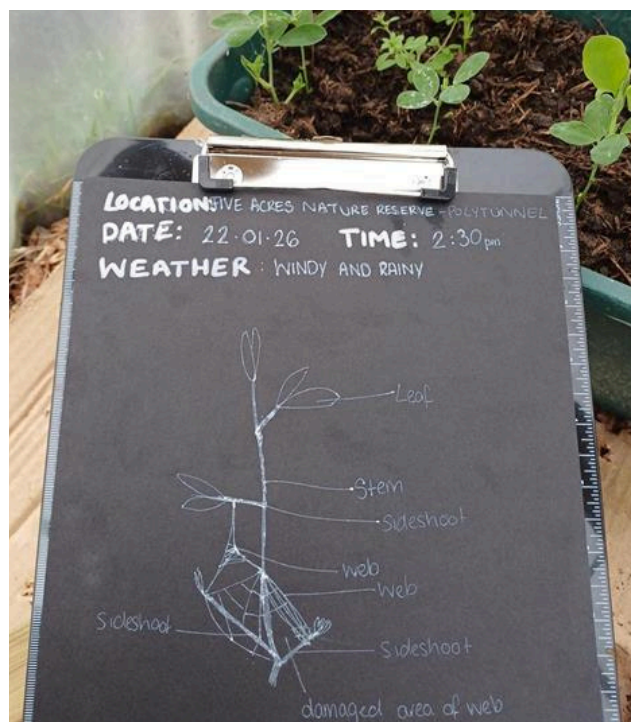 LOCATION: FIVE ACRES NATURE RESERVE - POLYTUNNEL
DATE: 22.01.26 TIME: 2:30pm
WEATHER: WINDY AND RAINY
Leaf
Stem
Sideshoot
web
web
Sideshoot
Sideshoot
damaged area of web